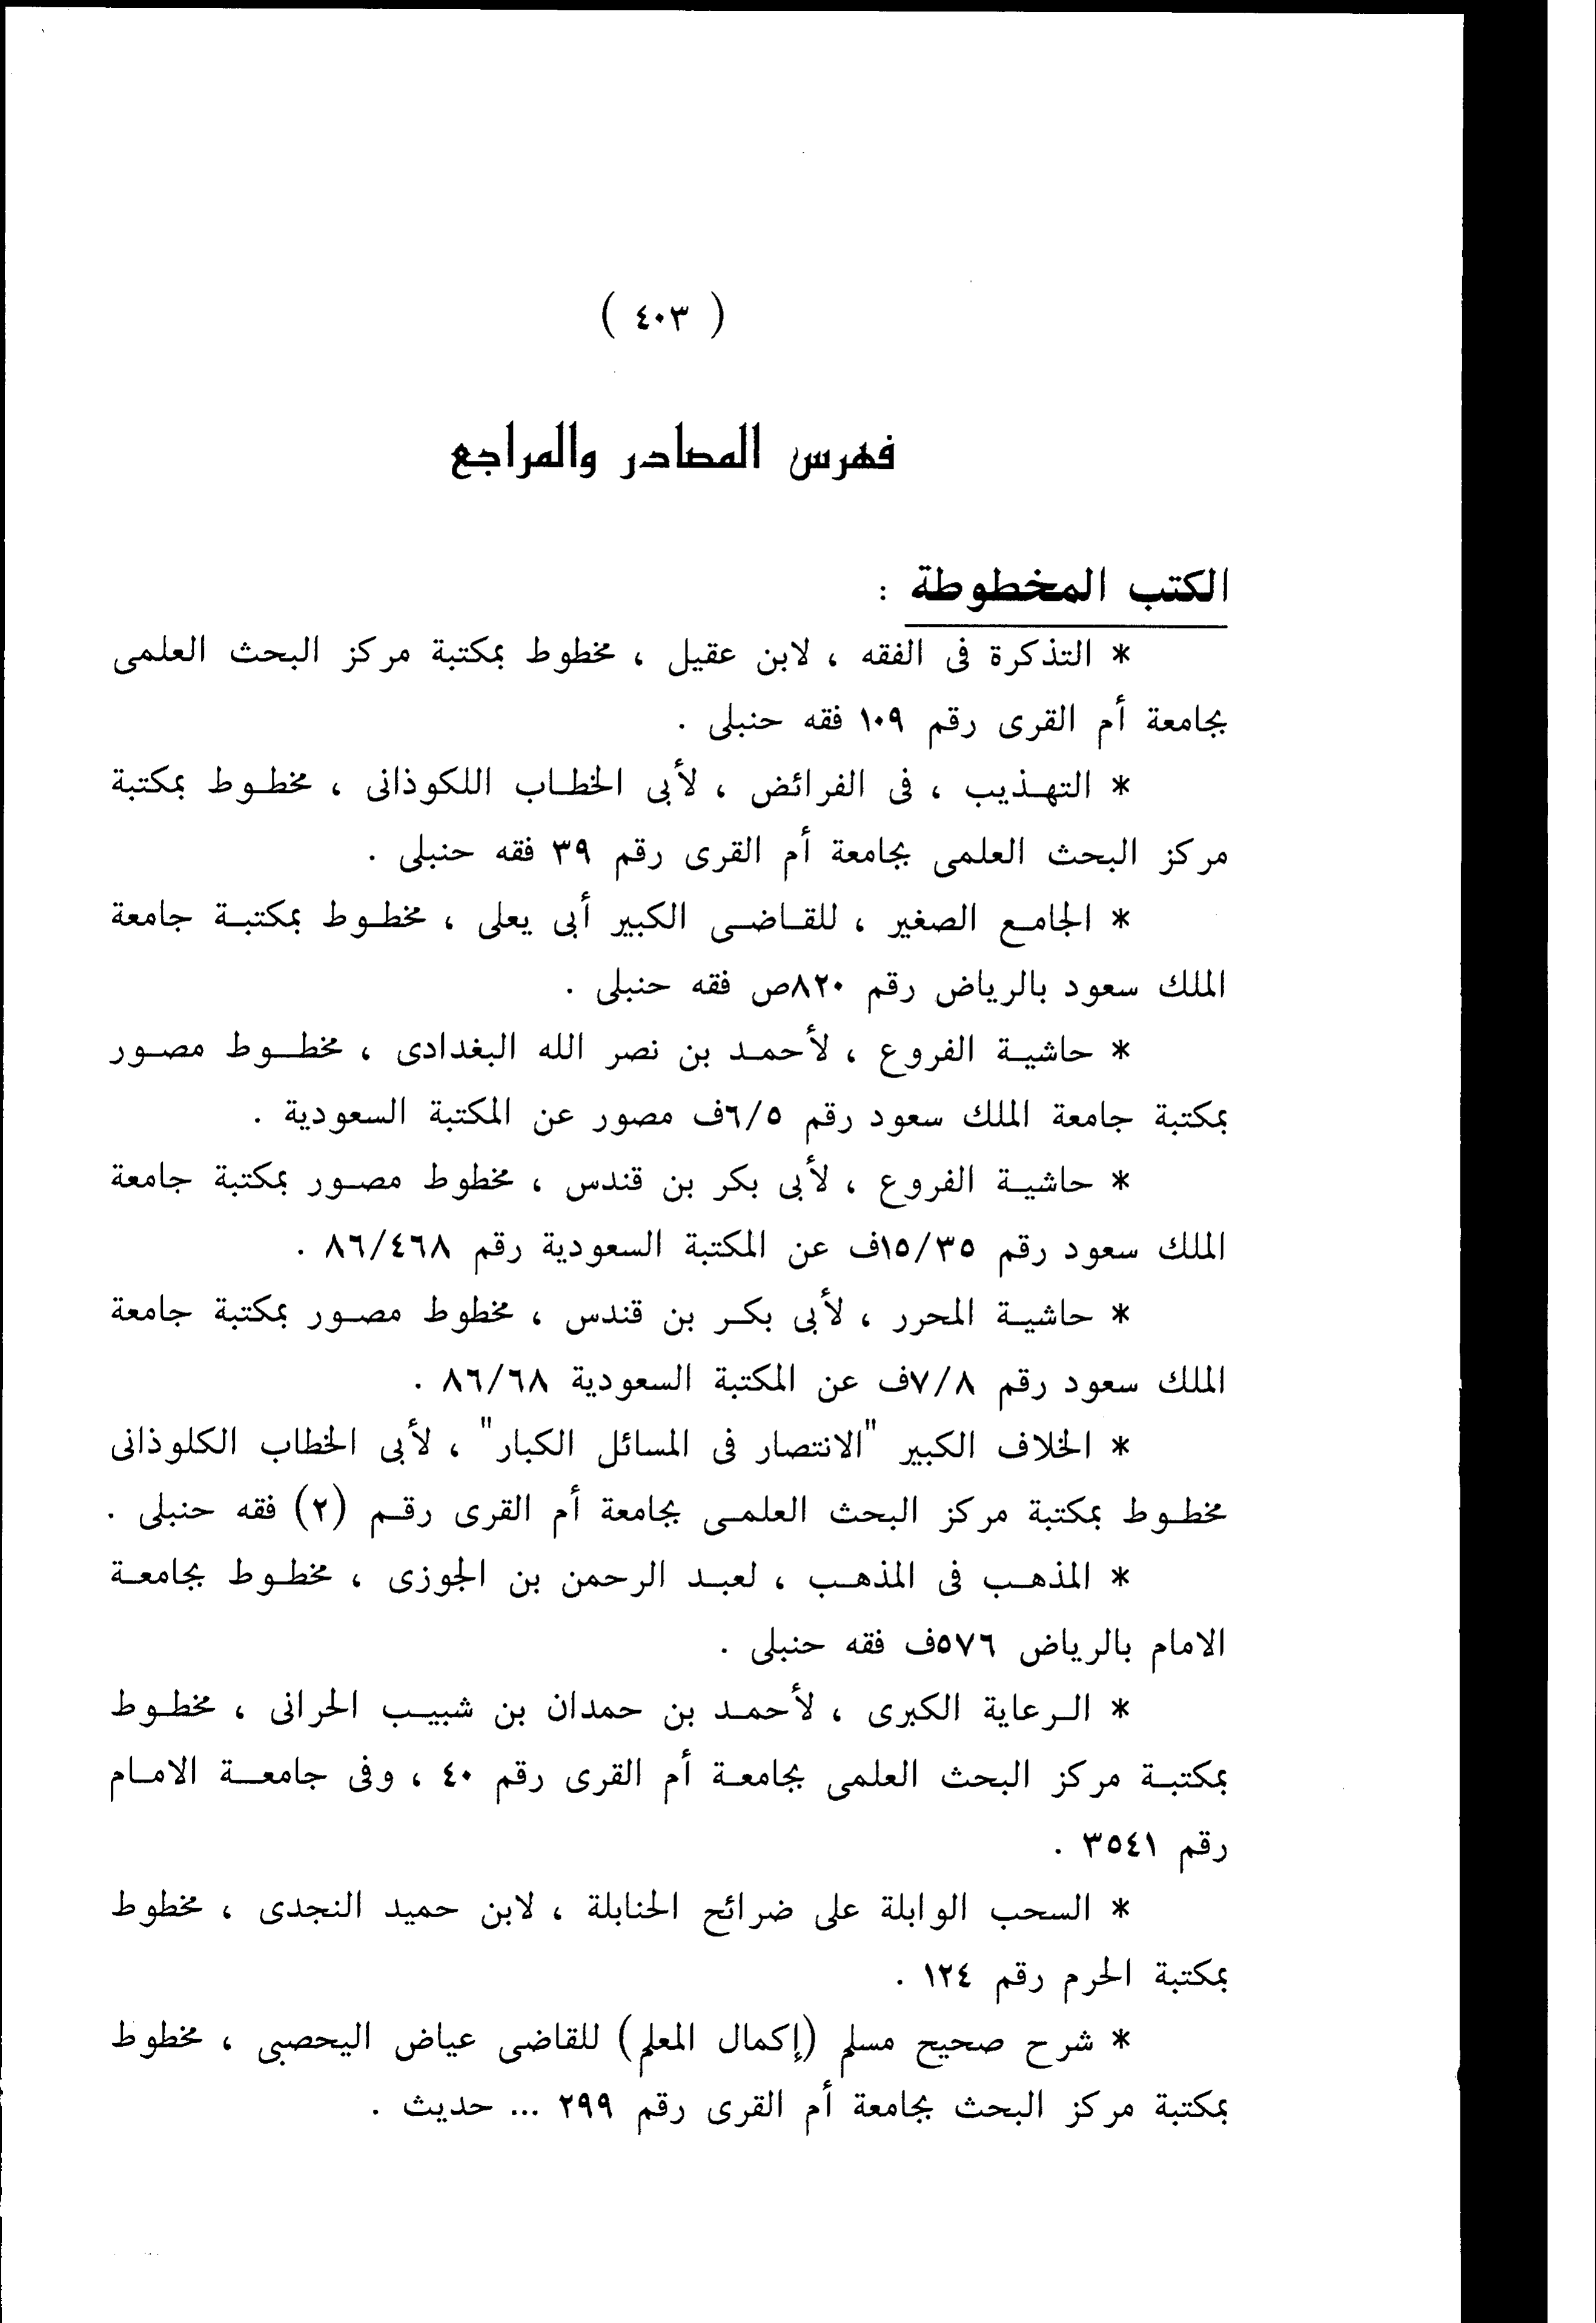 ( ٤٠٣ )
فهرس المصادر والمراجع
الكتب المخطوطة :
* التذكرة فى الفقه ، لابن عقيل ، مخطوط بمكتبة مركز البحث العلمى
بجامعة أم القرى رقم ١٠٩ فقه حنبلى .
* التهذيب ، فى الفرائض ، لأبى الخطاب اللكوذانى ، مخطوط بمكتبة
مركز البحث العلمى بجامعة أم القرى رقم ٣٩ فقه حنبلى .
* الجامع الصغير ، للقاضى الكبير أبى يعلى ، مخطوط بمكتبة جامعة
الملك سعود بالرياض رقم ٨٢٠ص فقه حنبلى .
* حاشية الفروع ، لأحمد بن نصر الله البغدادى ، مخطوط مصور
بمكتبة جامعة الملك سعود رقم ٦/٥ف مصور عن المكتبة السعودية .
* حاشية الفروع ، لأبى بكر بن قندس ، مخطوط مصور بمكتبة جامعة
الملك سعود رقم ١٥/٣٥ف عن المكتبة السعودية رقم ٨٦/٤٦٨ .
* حاشية المحرر ، لأبى بكر بن قندس ، مخطوط مصور بمكتبة جامعة
الملك سعود رقم ٧/٨ف عن المكتبة السعودية ٨٦/٦٨ .
* الخلاف الكبير "الانتصار فى المسائل الكبار" ، لأبى الخطاب الكلوذانى
مخطوط بمكتبة مركز البحث العلمى بجامعة أم القرى رقم (٢) فقه حنبلى .
* المذهب فى المذهب ، لعبد الرحمن بن الجوزى ، مخطوط بجامعة
الامام بالرياض ٥٧٦ف فقه حنبلى .
* الرعاية الكبرى ، لأحمد بن حمدان بن شبيب الحرانى ، مخطوط
بمكتبة مركز البحث العلمى بجامعة أم القرى رقم ٤٠ ، وفى جامعة الامام
رقم ٣٥٤١ .
* السحب الوابلة على ضرائح الحنابلة ، لابن حميد النجدى ، مخطوط
بمكتبة الحرم رقم ١٢٤ .
* شرح صحيح مسلم (إكمال المعلم) للقاضى عياض اليحصبى ، مخطوط
بمكتبة مركز البحث بجامعة أم القرى رقم ٢٩٩ ... حديث .